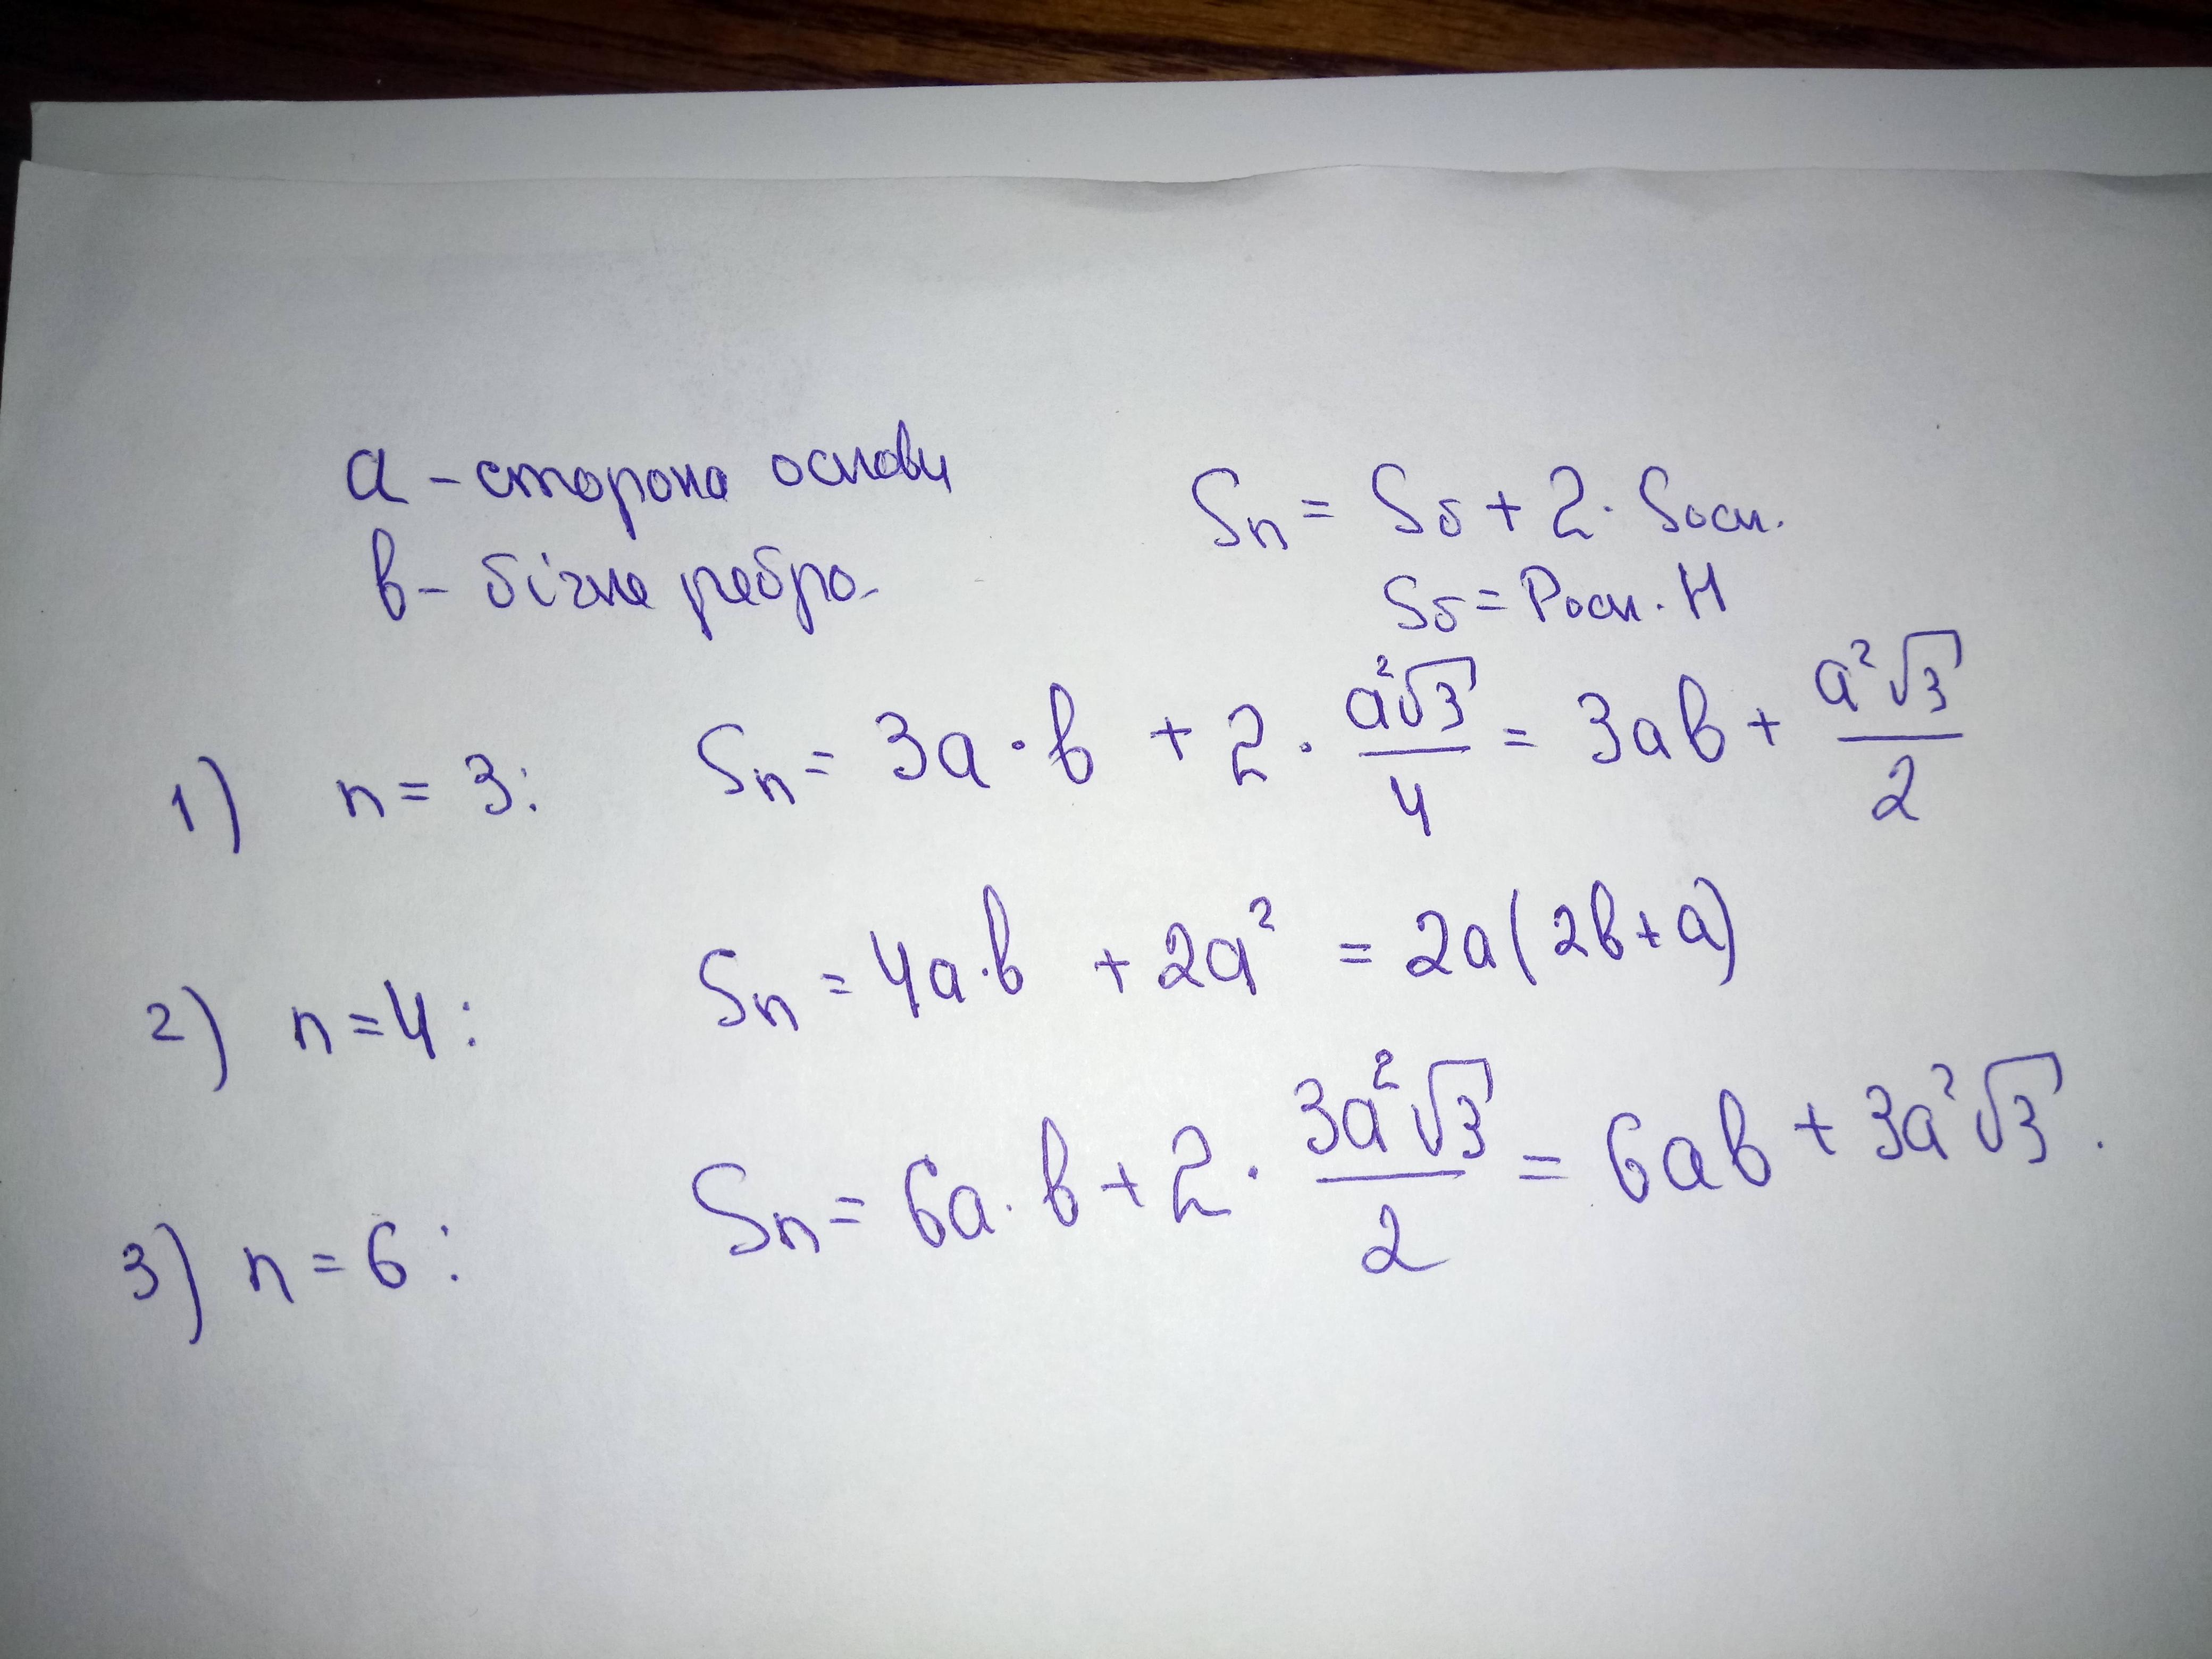 a - сторона основи
в - бічне ребро.
Sп = Sб + 2 · Sосн.
Sб = Pосн. H
1) n = 3: Sп = 3a · в + 2 · a²√3/4 = 3aв + a²√3/2
2) n = 4: Sп = 4a · в + 2a² = 2a(2в + a)
3) n = 6: Sп = 6a · в + 2 · 3a²√3/2 = 6aв + 3a²√3.